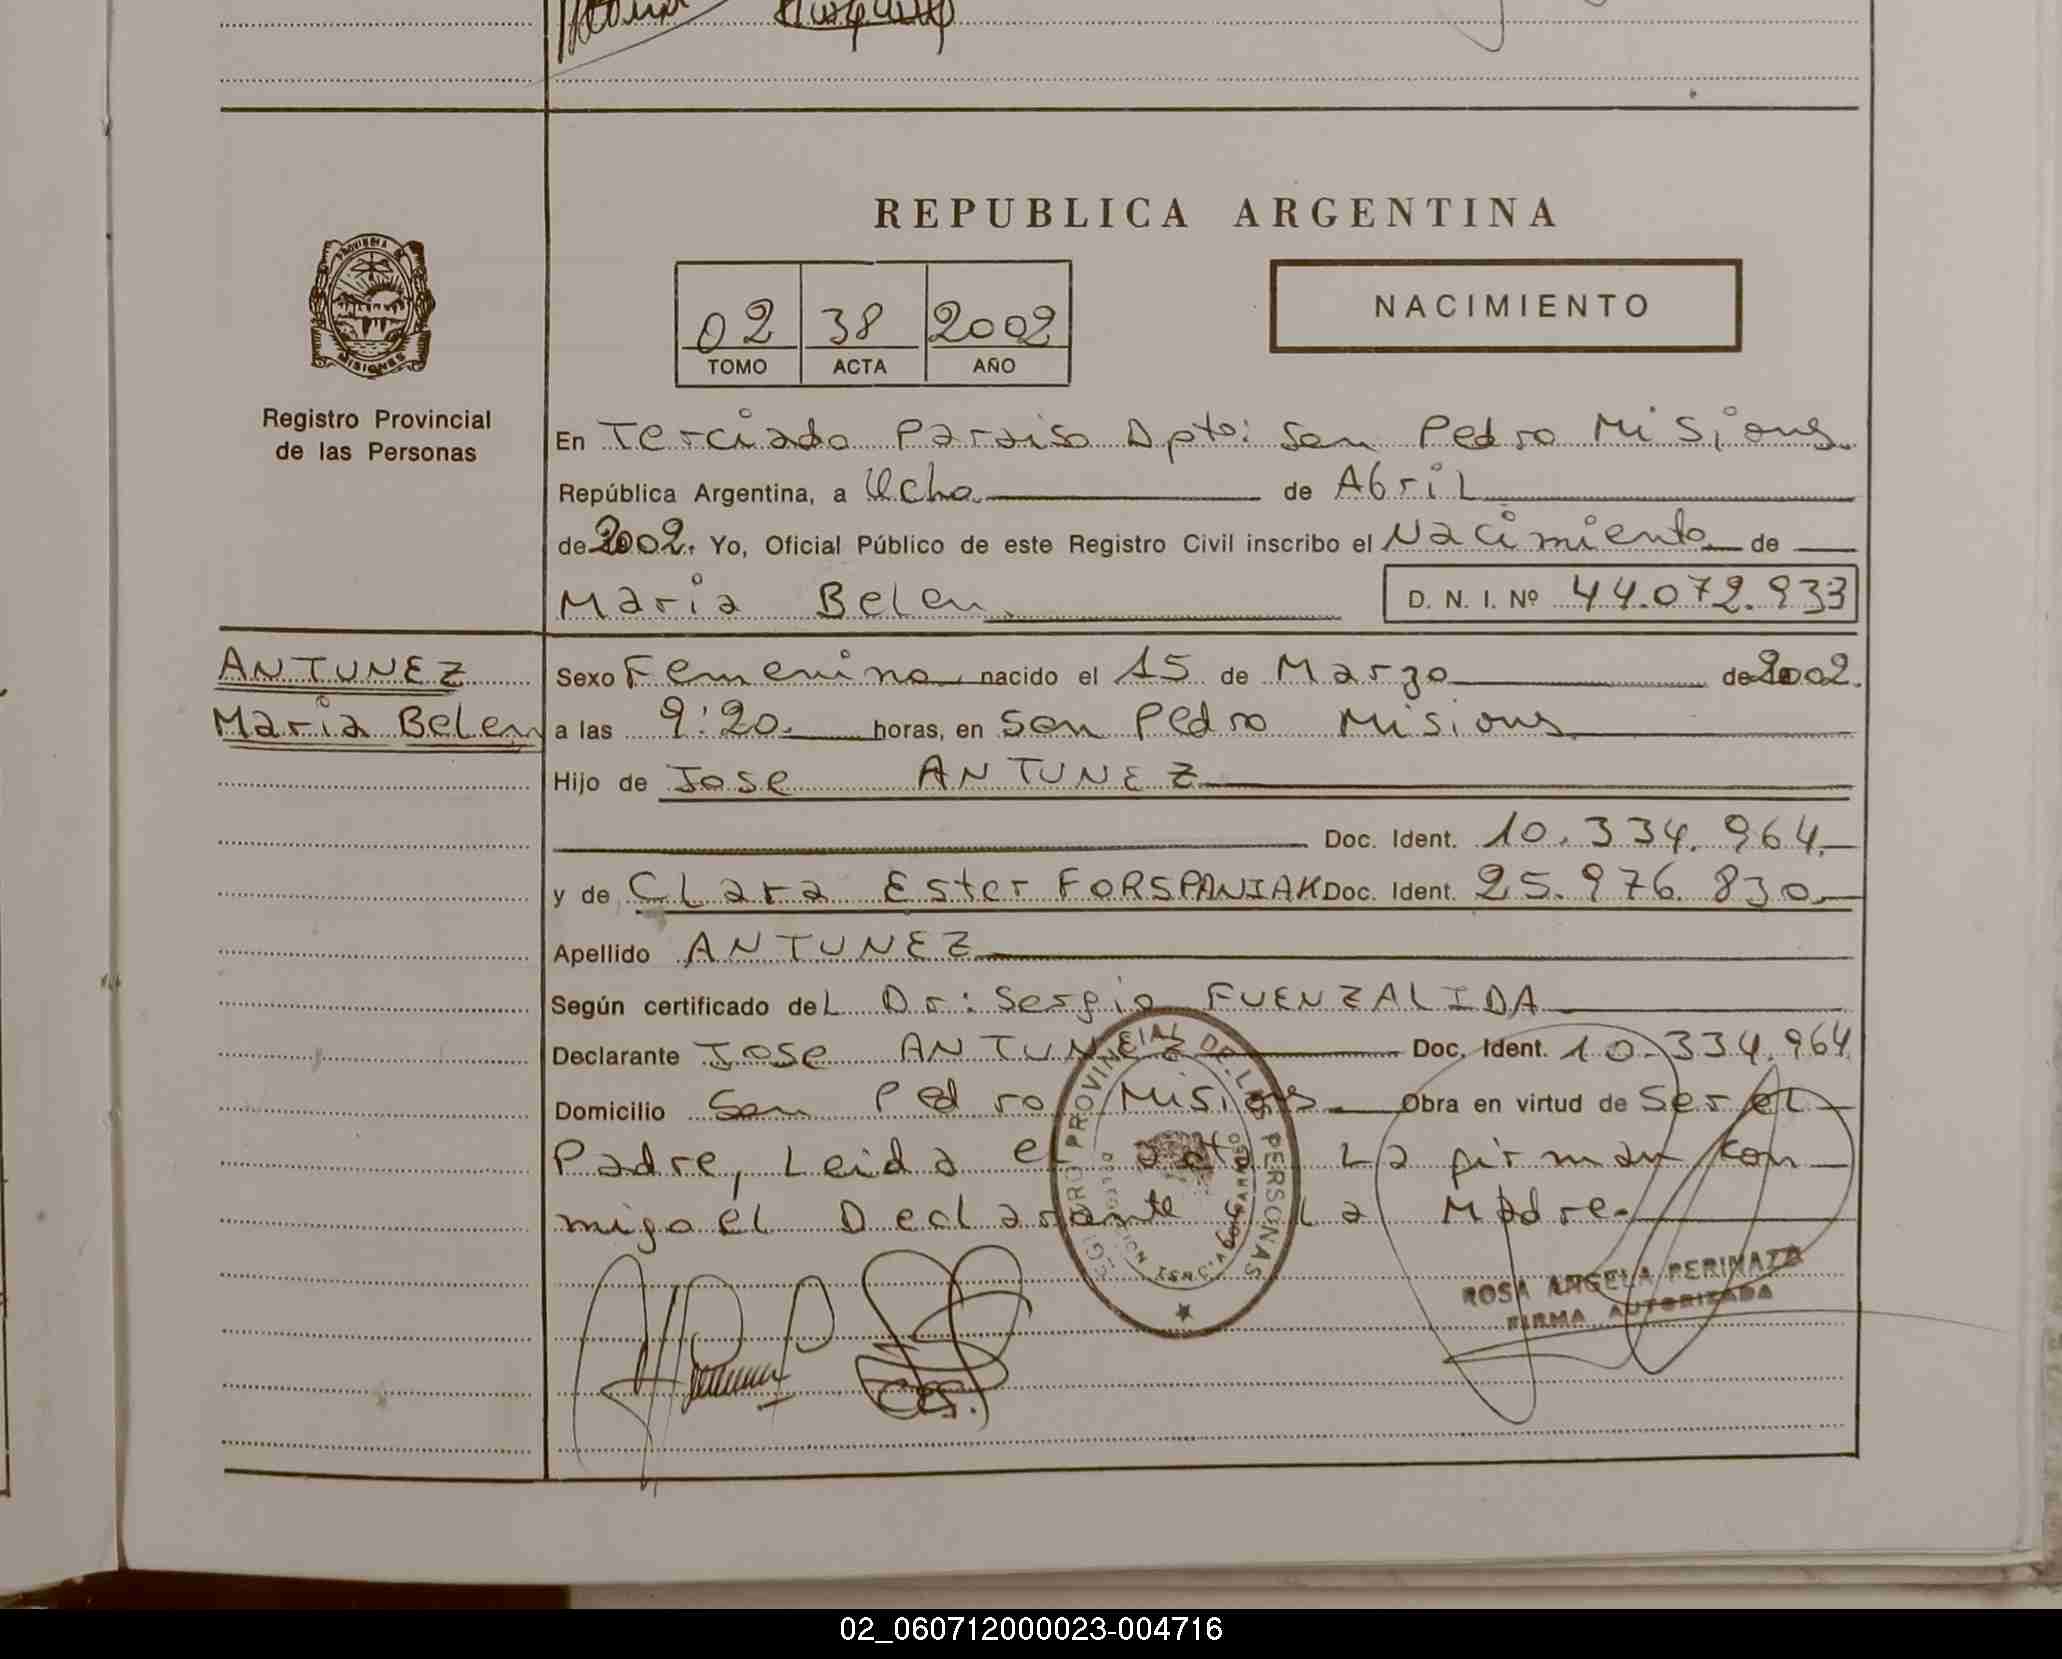 REPUBLICA ARGENTINA
PROVINCIA DE
MISIONES
Registro Provincial
de las Personas
02 38 2002
TOMO ACTA AÑO
NACIMIENTO
En Terciado Paraiso Dpto: San Pedro Misiones
República Argentina, a Ocho de Abril
de 2002. Yo, Oficial Público de este Registro Civil inscribo el Nacimiento de
Maria Belen D. N. I. Nº 44.072.933
ANTUNEZ
Maria Belen
Sexo Femenino nacido el 15 de Marzo de 2002.
a las 9:20. horas, en San Pedro Misiones
Hijo de Jose ANTUNEZ
Doc. Ident. 10.334.964.
y de Clara Ester FORSPANIAK Doc. Ident. 25.976.830
Apellido ANTUNEZ
Según certificado del Dr: Sergio FUENZALIDA
Declarante Jose ANTUNEZ Doc. Ident. 10.334.964
Domicilio San Pedro Misiones Obra en virtud de Ser el
Padre, Leida el acta La firman con
migo el Declarante y La Madre.
REGISTRO PROVINCIAL DE LAS PERSONAS
ROSA ANGELA PERINAZZO
FIRMA AUTORIZADA
02_060712000023-004716